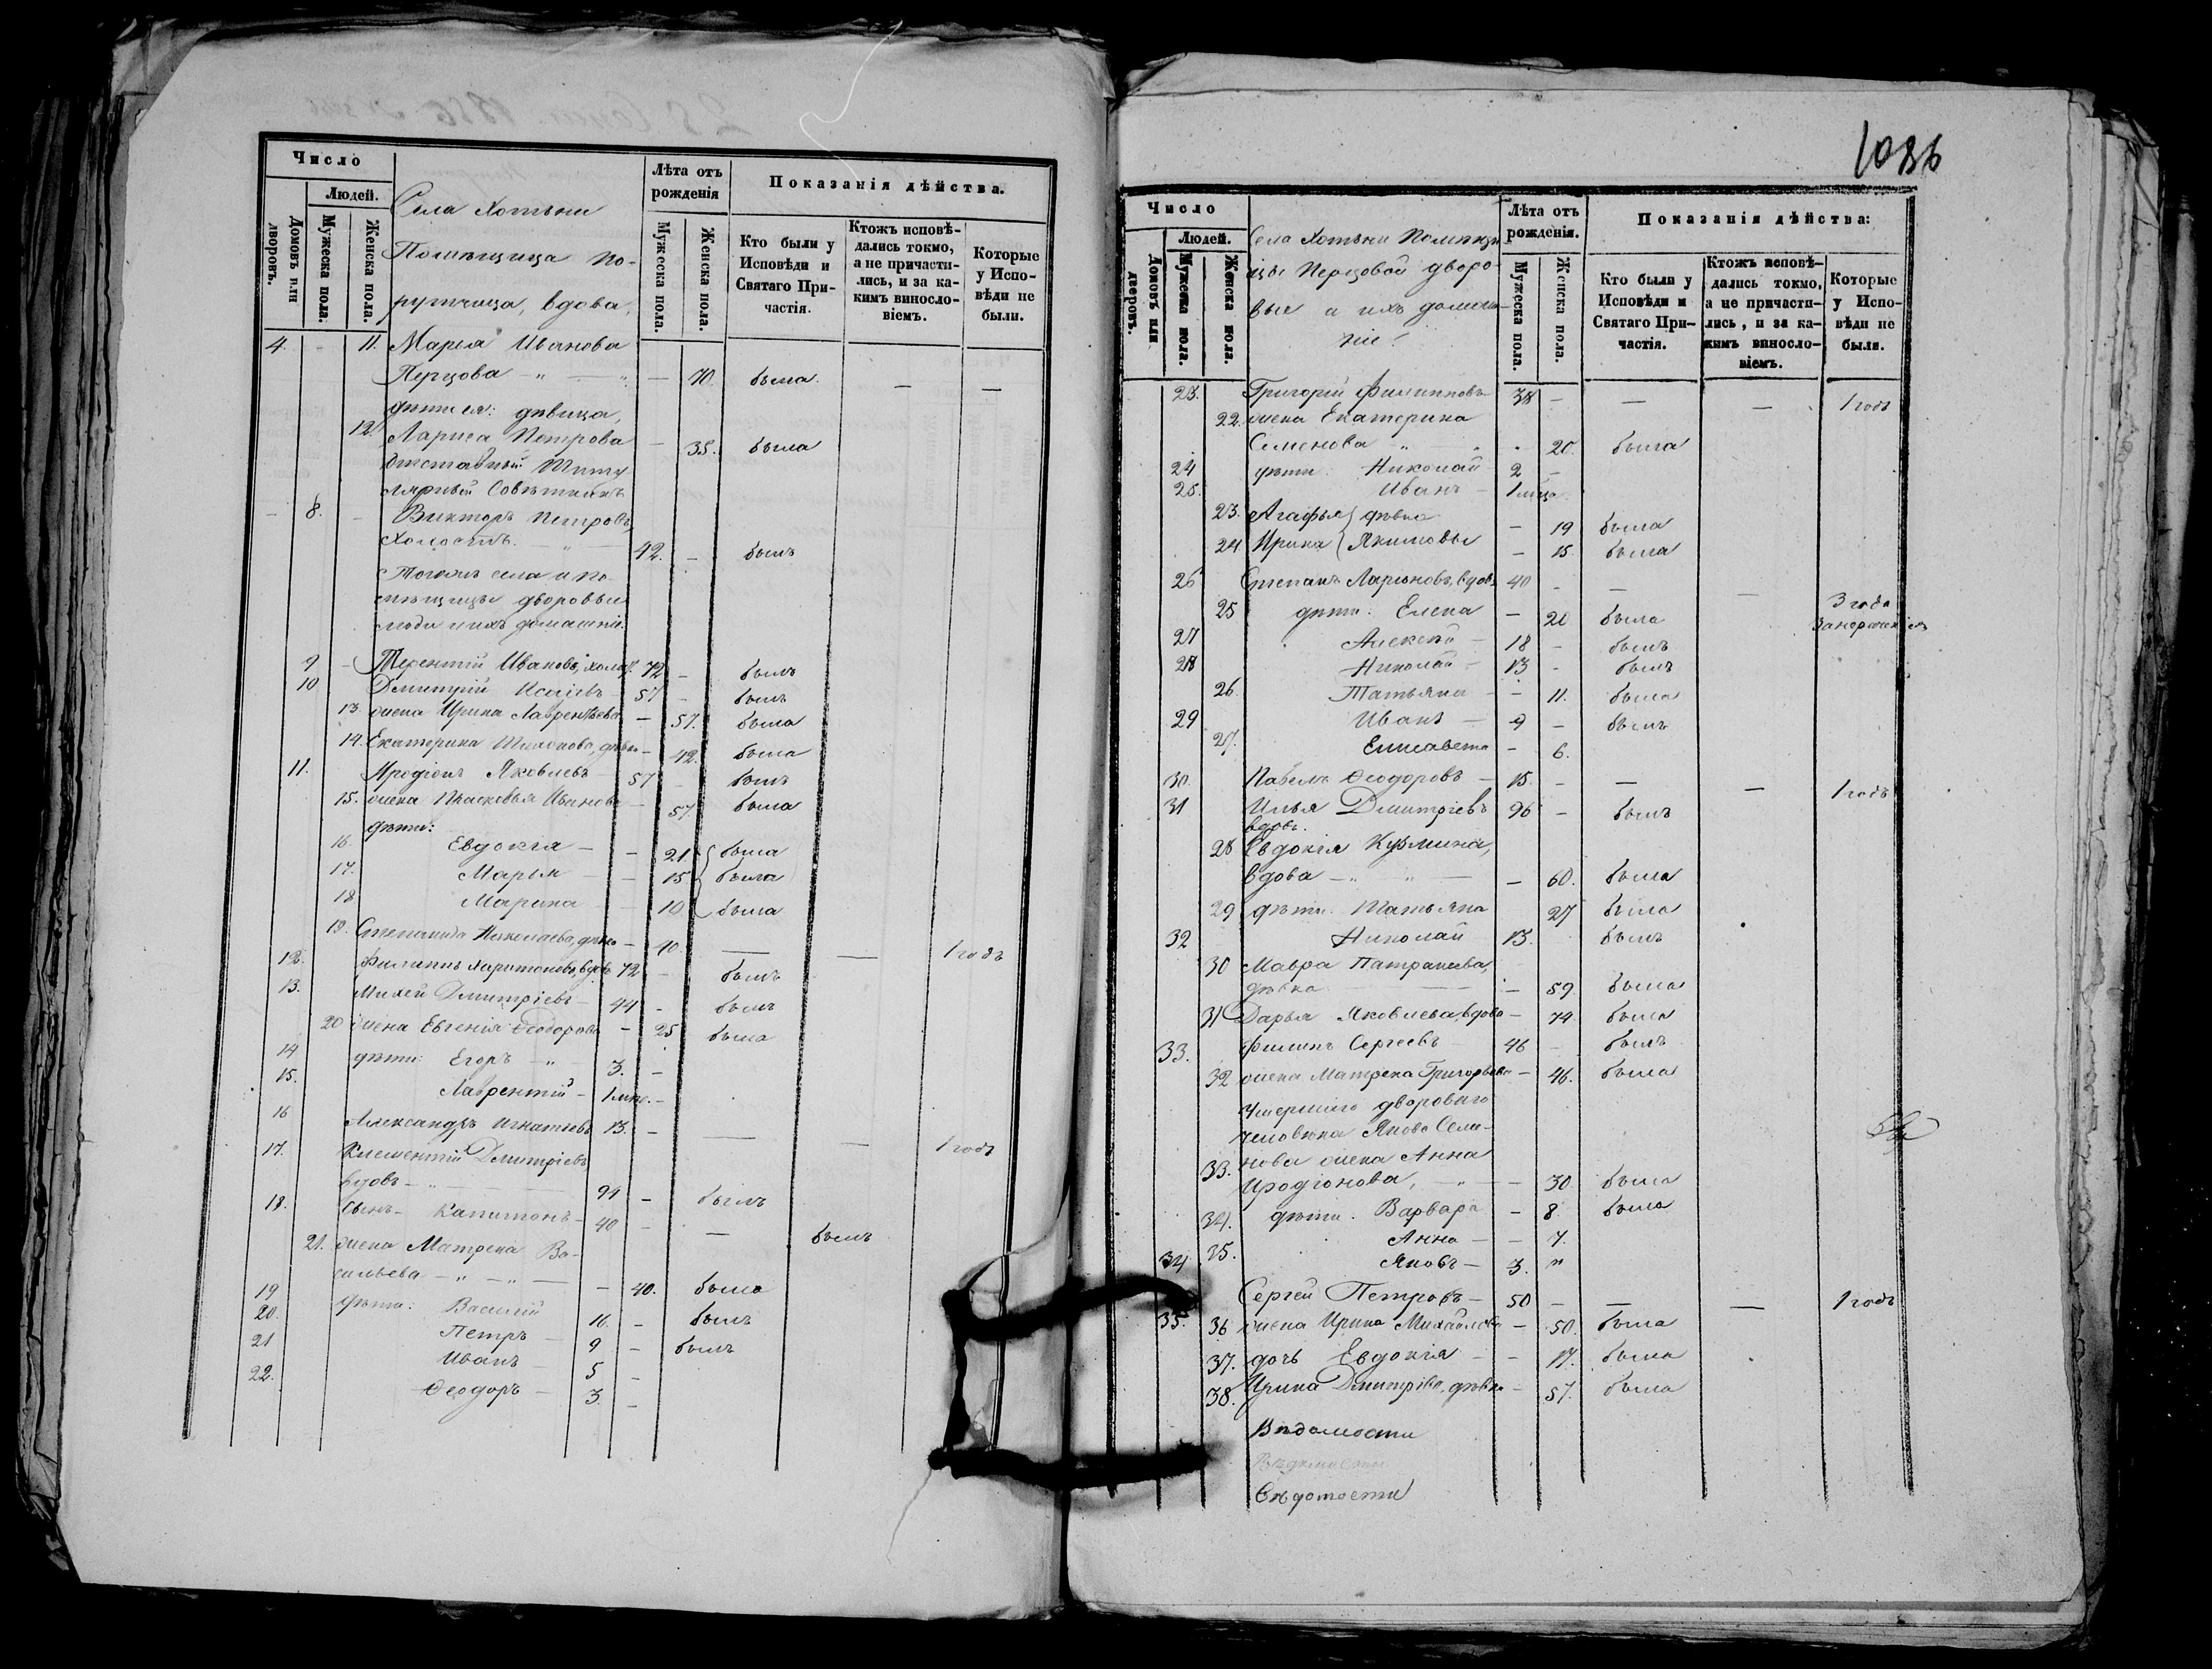 Число
Людей.
Домовъ или дворовъ.
Мужеска пола.
Женска пола.
Лѣта отъ рожденія
Мужеска пола.
Женска пола.
Показанія дѣйства.
Кто были у Исповѣди и Святаго Причастія.
Ктожъ исповѣдались токмо, а не причастились, и за какимъ винословіемъ.
Которые у Исповѣди не были.
Села Хотѣни
Помѣщица По-
ручица, вдова,
4. - 11. Марѳа Иванова
Перцова - " - — 70. была. — —
дѣти ея: дѣвица,
12. Лариса Петрова — 35. была
Отставный Титу
лярный Совѣтникъ
- 8. - Викторъ Петровъ,
Холостъ. - " - 42. - былъ
Тогожъ села и по-
мѣщицы дворовые
люди и ихъ домашніе.
9 - Терентій Ивановъ, холос. 72 - былъ
10 Дмитрій Исаіевъ 57 - былъ
13. жена Ирина Лаврентьева — 57. была
14. Екатерина Тихонова, дѣвка — 42. была
11. Иродіонъ Яковлевъ 57 - былъ
15. жена Прасковья Иванова — 57 была
дѣти:
16. Евдокія — — 21. была
17. Марья — — 15 была
18 Марина — 10 была
19. Степанида Николаева, дѣвка — 40. — — 1 годъ
12. Филиппъ Харитоновъ, вдовъ 72 - былъ
13. Михей Дмитріевъ — 44 - былъ
20 жена Евгенія Ѳеодорова — 25 была
14 дѣти: Егоръ - " 3. -
15. Лаврентій - 1 мѣс. -
16 Александръ Игнатьевъ 13. - — — 1 годъ
17. Климентій Дмитріевъ
вдовъ - " — 91 - былъ
18. Сынъ - Капитонъ - 40 - — былъ
21. жена Матрена Ва-
сильева - " - " — — 40. была
19 дѣти: Василій 16. - былъ
20. Петръ — 9 - былъ
21 Иванъ — 5 -
22. Ѳеодоръ — 3. -
1036
Число
Людей.
Домовъ или дворовъ.
Мужеска пола.
Женска пола.
Лѣта отъ рожденія.
Мужеска пола.
Женска пола.
Показанія дѣйства:
Кто были у Исповѣди и Святаго Причастія.
Ктожъ исповѣдались токмо, а не причастились, и за какимъ винословіемъ.
Которые у Исповѣди не были.
Села Хотѣни Помѣщи
цы Перцовой дворо-
вые и ихъ домаш-
ніе:
23. Григорій Филипповъ 38 - — — 1 годъ
22. жена Екатерина
Семенова - " - 20. была
24 дѣти: Николай 2 -
25. Иванъ — 1 мѣсц.
23. Агафья дѣвки — 19 была
24 Ирина Якимовы — 15. была
26 Степанъ Ларіоновъ, вдовъ 40 - — — 3 года
25 дѣти: Елена — 20 была
27 Алексѣй — 18 - былъ
28 Николай — 13 - былъ
26. Татьяна — - 11. была
29 Иванъ — 9 - былъ
27. Елисавета - 6.
30. Павелъ Ѳеодоровъ — 15. - — — 1 годъ
31 Илья Дмитріевъ 96 - былъ
вдовъ.
28 Евдокія Кузьмина,
вдова - " " — — 60. была
29 дѣти: Татьяна 27 была
32 Николай 13. былъ
30 Мавра Патракеева,
дѣвка — — 59 была
31 Дарья Яковлева, вдова — 74. была
33. Филипъ Сергеевъ 46 - былъ
32 жена Матрена Григорьева — 46. была
Умершаго двороваго
человѣка Якова Сели-
33. нова жена Анна
Иродіонова, - " - — 30. была
34. дѣти: Варвара — 8. была
35. Анна — — 7.
34 Яковъ — 3. "
35. Сергей Петровъ — 50 - — — 1 годъ
36 жена Ирина Михайлова — 50. была
37. дочь Евдокія — — 17. была
38. Ирина Дмитріева, дѣвка — 57. была
Вѣдомости
Вѣдомости